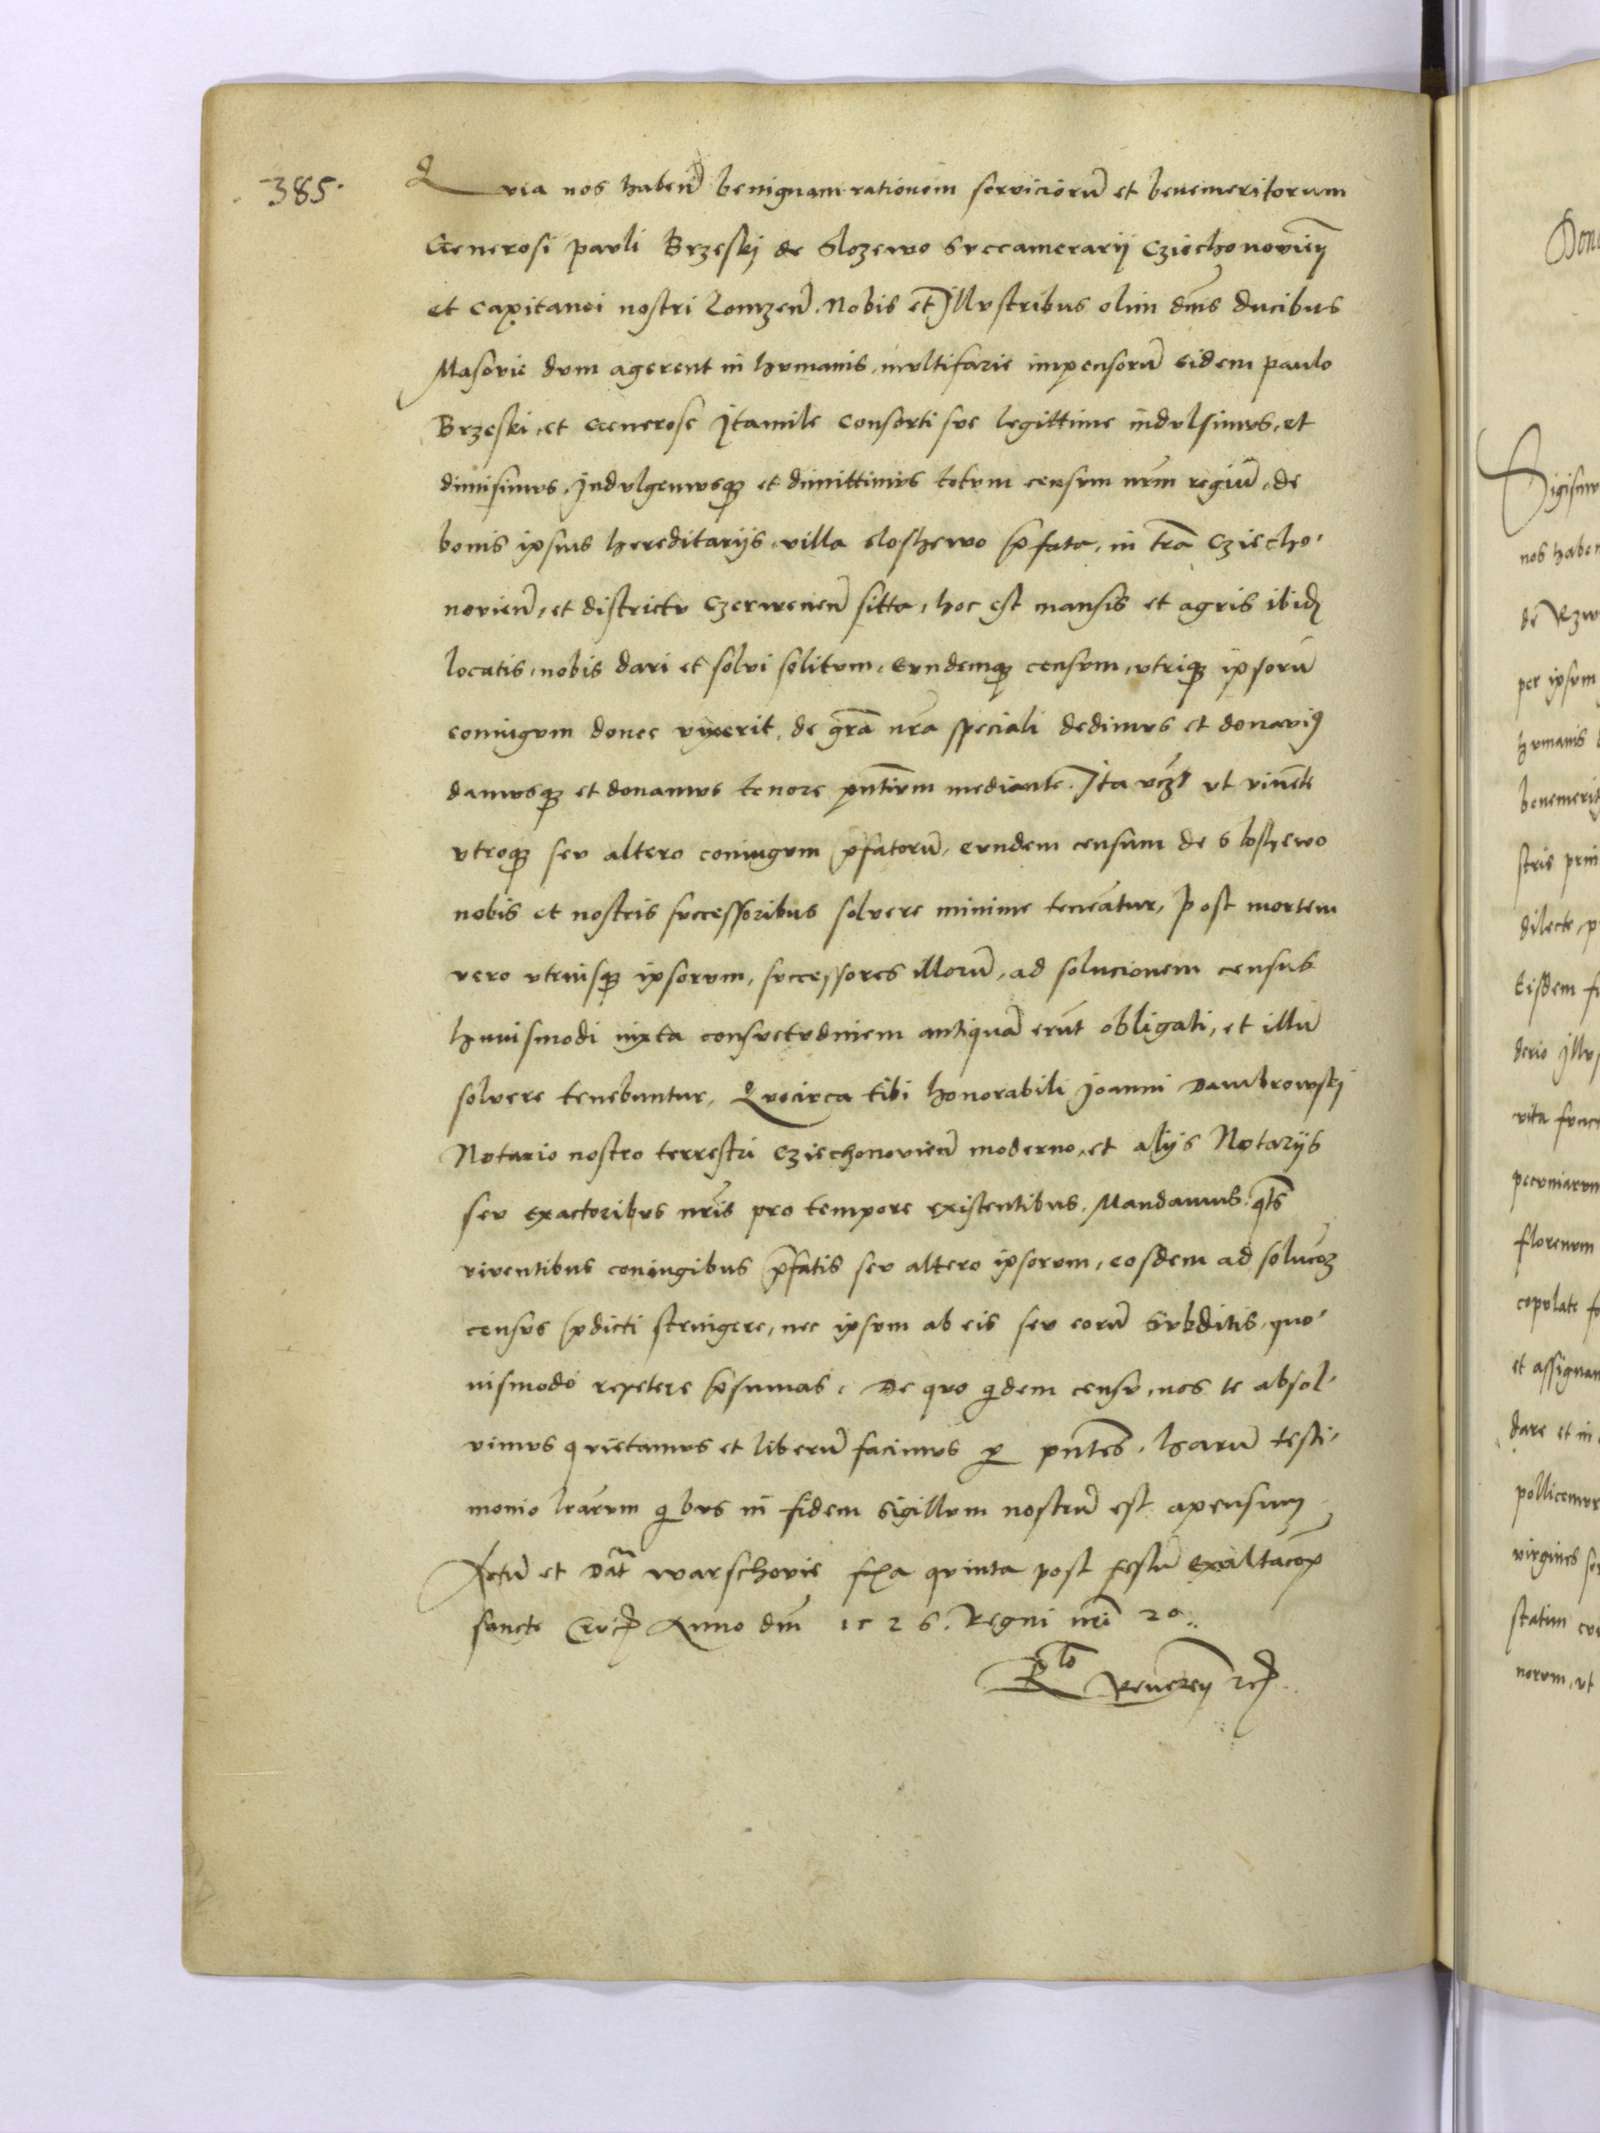 385.
Quia nos haben̄ benignam rationem serviciorū et benemeritorum
Generosi pauli Brzeskj de Slozewo Succamerarij Cziechonovień
et capitanei nostri Lomzeń. Nobis et Illustribus olim dn̄is ducibus
Masovie dum agerent in humanis, multifarie impensorū eidem paulo
Brzeski, et Generose consorti sue legittime indulsimus, et
dimisimus, Indulgemusq₃ et dimittimus totum censum nr̄m regiū, de
bonis ipsius hereditarijs villa sloshewo p̄fata, in tr̄a Cziecho-
novień, et districtu Czerwenen̄ sitta, hoc est mansis et agris ibid₎
locatis, nobis dari et solui solitum, eundemq₃ censum, utriq₃ ipsorū
coniugum donec vixerit, de gr̄a nr̄a speciali dedimus et donavi⁹
damusq₃ et donamus tenore pn̄tium mediante. Ita vcz ut viuēte
utroq₃ seu altero coniugum p̄fatorū, eundem censum de sloshewo
nobis et nostris successoribus solvere minime teneātur, Post mortem
vero utriusq₃ ipsorum, successores illorū, ad solucionem census
huiusmodi iuxta consuetudinem antiquā erūt obligati, et illū
solvere tenebuntur, Quocirca tibi honorabili Joanni Dambrowskj
Notario nostro terrestri Cziechonovień moderno, et alijs Notarijs
seu exactoribus nr̄is pro tempore existentibus. Mandamus, qt̄s
viventibus coniugibus p̄fatis seu altero ipsorum, eosdem ad soluc̄oꝫ
census p̄dicti stringere, nec ipsum ab eis seu eorū subditis, quo-
uismodo repetere p̄sumas, De quo qͥdem censu, nos te absol-
vimus quietamus et liberū facimus ꝑ pn̄tes. harū testi-
monio lr̄arum qͥbus in fidem sigillum nostrū est apensum
Actū et Dat̄ warschovie fr̄ia quinta post festū exaltac̄oꝫ
sancte Cruc₎ Anno dn̄i 1526. Regni nr̄i 20.